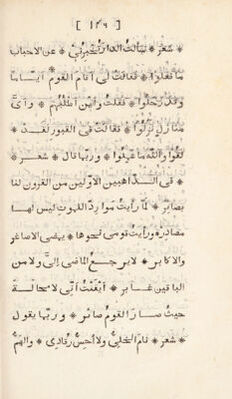 [ ١٤٩ ]
* شعر * سألت الدار تخبرني * عن الاحباب
ما فعلوا * فقالت لي أنام القوم أيّاما
وقد رحلوا * فقلت وأين أطلبهم * وأيّ
منازل نزلوا * فقالت في القبور لقد *
لقوا والله ما عملوا * وربما قال * شعر *
* في الذاهبين الاوّلين من القرون لنا
بصائر * لمّا رأيت مواردا للموت ليس لها
مصادر * ورأيت قومي نحوها * يمضي الاصاغر
والاكابر * لا يرجع الماضي إليّ ولا من
الباقين غابر * أيقنت أنّي لا محالة
حيث صار القوم صائر * وربما يقول
* شعر * نام الخليّ ولا أحسّ رقادي * والهمّ